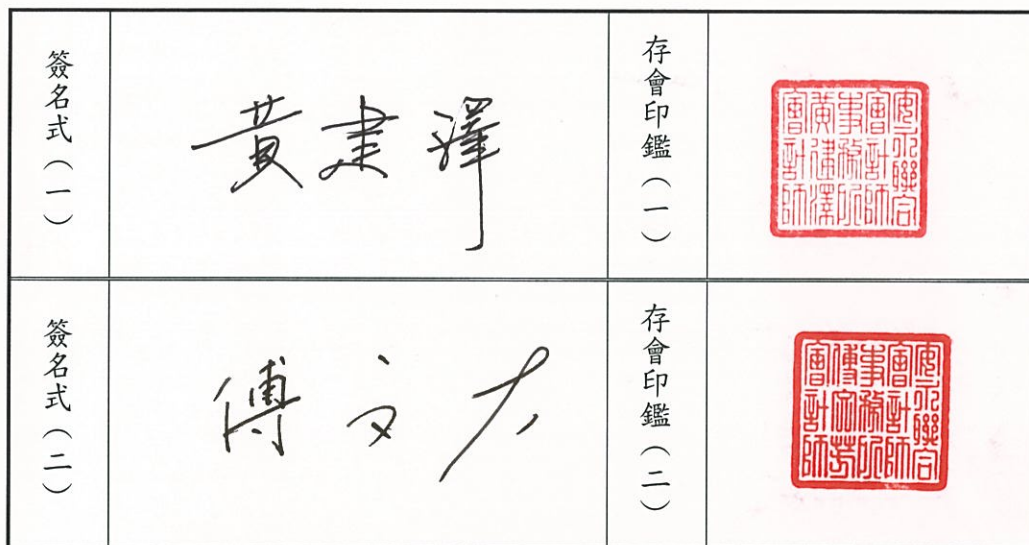 簽名式(一)
黃建澤
存會印鑑(一)
安永聯合
會計師
事務所
黃建澤
會計師
簽名式(二)
傅文
存會印鑑(二)
安永聯合
會計師
事務所
傅文芳
會計師